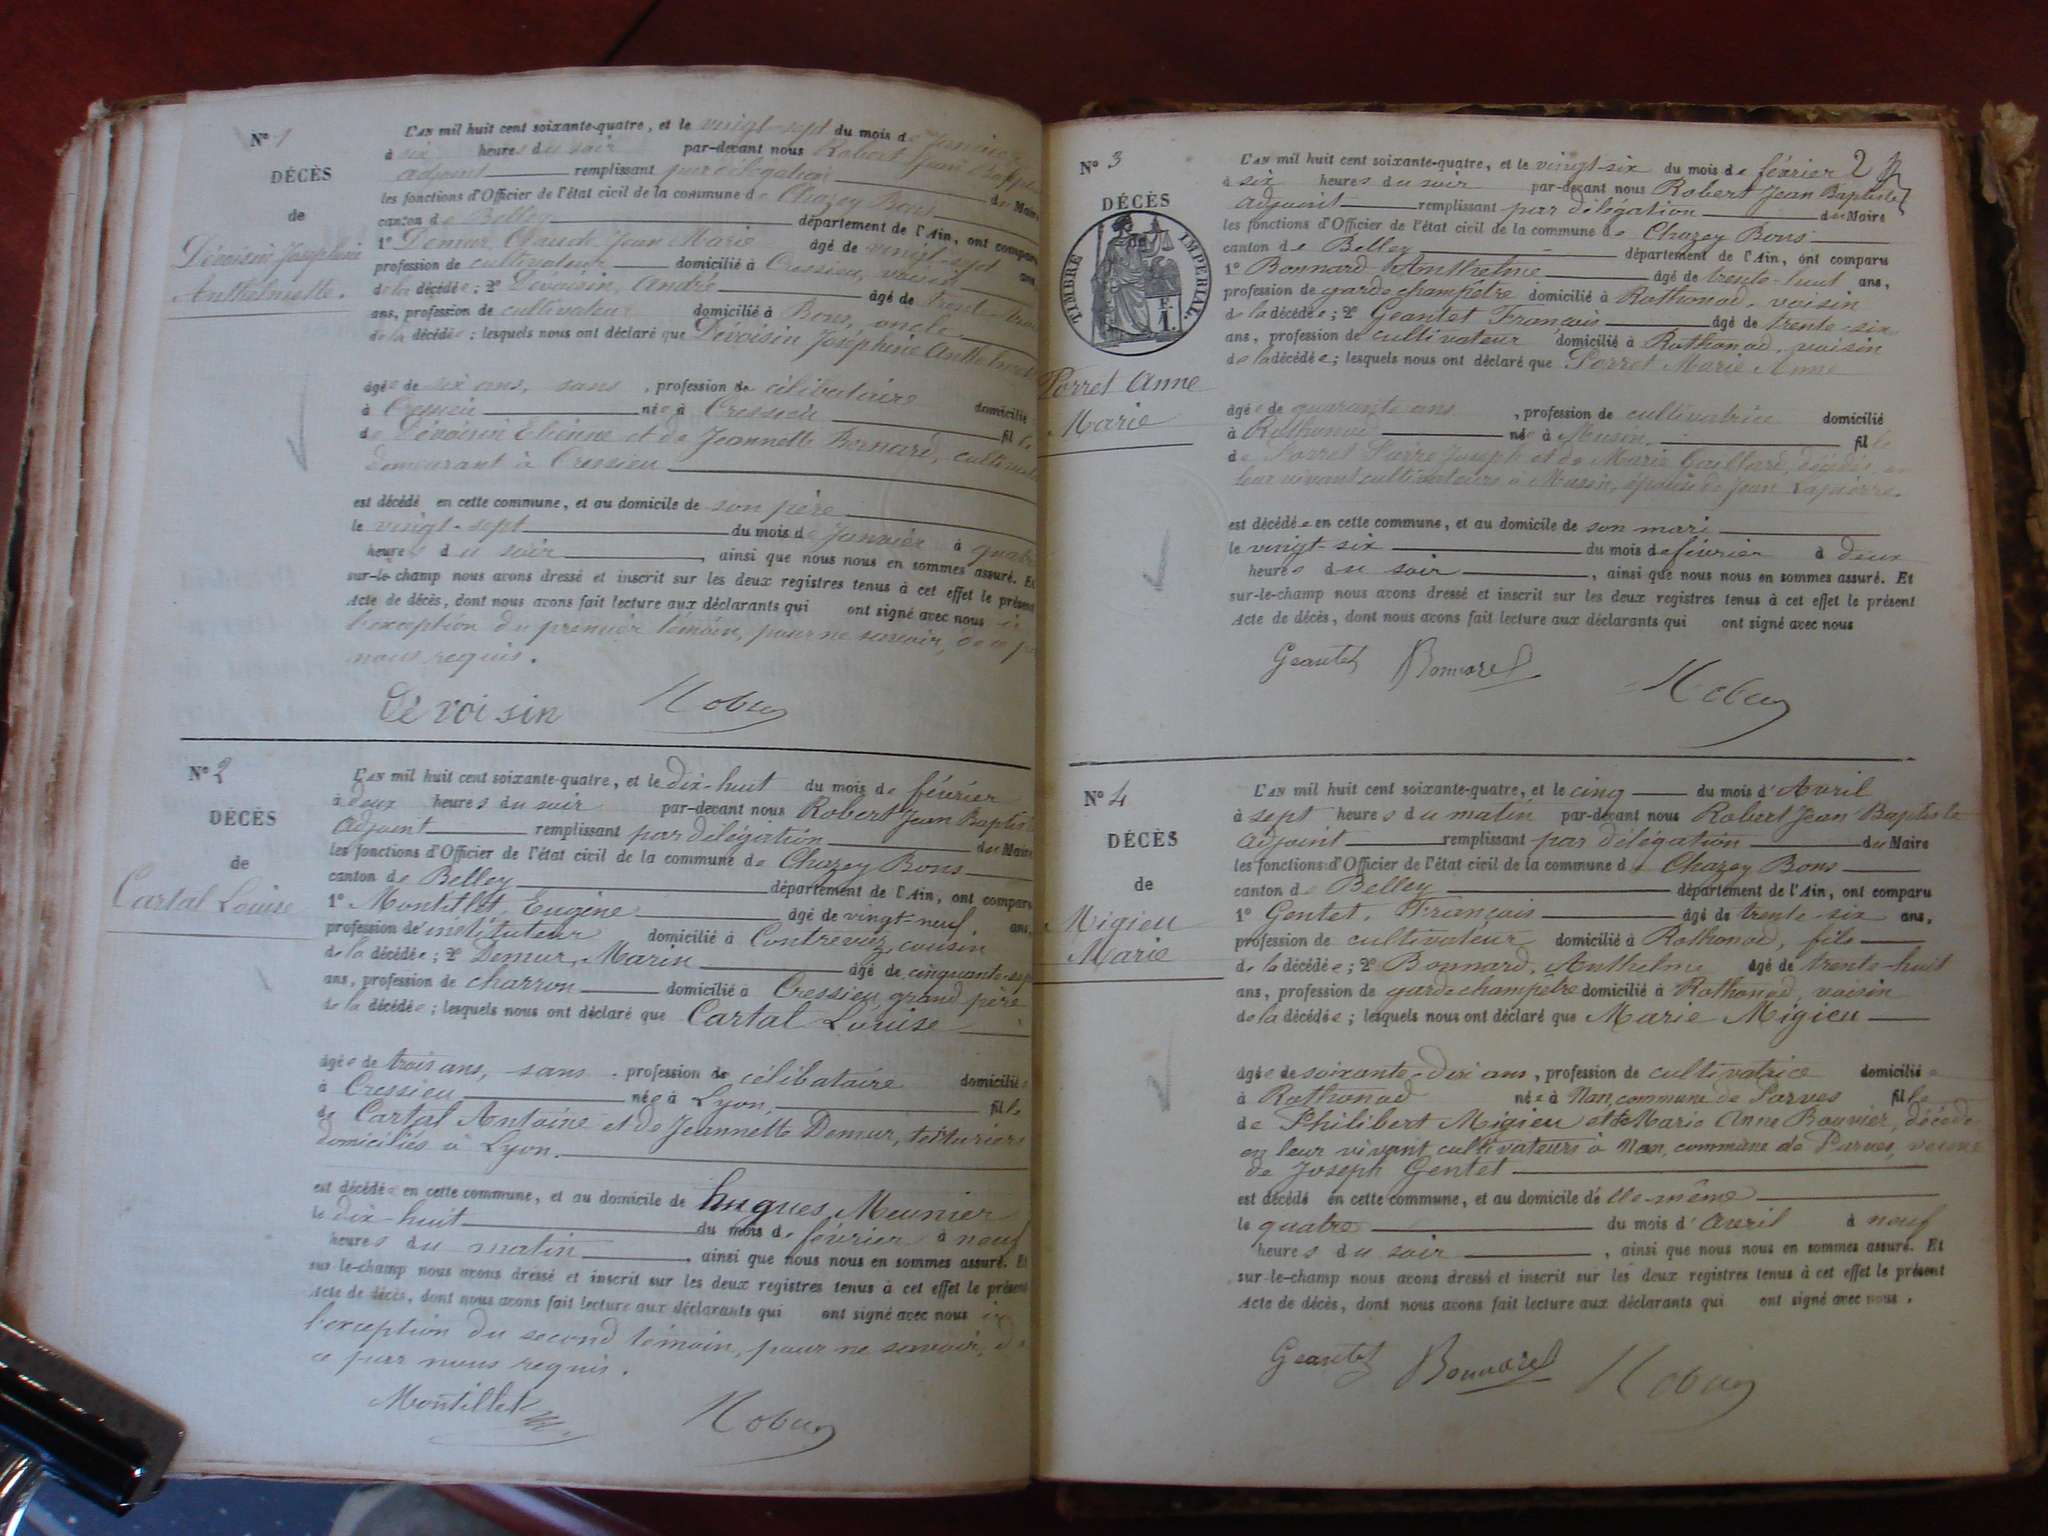 N° 1
DÉCÈS
de
Dévoisin Joséphine
Anthelmette.
L'AN mil huit cent soixante-quatre, et le vingt-sept du mois de Janvier
à six heures du soir par-devant nous Robert Jean Baptiste
adjoint remplissant par délégation du Maire
les fonctions d'Officier de l'état civil de la commune de Chazey Bons
canton de Belley département de l'Ain, ont comparu
1° Demur Claude Jean Marie âgé de vingt-sept ans,
profession de cultivateur domicilié à Cressieu, voisin
de la décédée ; 2° Dévoisin, André âgé de trente-trois
ans, profession de cultivateur domicilié à Bons, oncle
de la décédée ; lesquels nous ont déclaré que Dévoisin Joséphine Anthelmette
âgée de six ans, sans , profession de célibataire domicilié
à Cressieu née à Cressieu fille
de Dévoisin Etienne et de Jeannette Bornard, cultivateurs
demeurant à Cressieu
est décédé en cette commune, et au domicile de son père
le vingt-sept du mois de Janvier à quatre
heures du soir , ainsi que nous nous en sommes assuré. Et
sur-le-champ nous avons dressé et inscrit sur les deux registres tenus à cet effet le présent
Acte de décès, dont nous avons fait lecture aux déclarants qui ont signé avec nous à
l'exception du premier témoin, pour ne savoir, de ce par
nous requis.
Dévoisin Robert
N° 2
DÉCÈS
de
Cartal Louise
L'AN mil huit cent soixante-quatre, et le dix-huit du mois de février
à deux heures du soir par-devant nous Robert Jean Baptiste
adjoint remplissant par délégation du Maire
les fonctions d'Officier de l'état civil de la commune de Chazey Bons
canton de Belley département de l'Ain, ont comparu
1° Montillet, Eugène âgé de vingt-neuf ans,
profession de instituteur domicilié à Contrevoz, cousin
de la décédée ; 2° Demur, Marin âgé de cinquante-sept
ans, profession de charron domicilié à Cressieu, grand père
de la décédée ; lesquels nous ont déclaré que Cartal Louise
âgée de trois ans, sans , profession de célibataire domiciliée
à Cressieu née à Lyon, fille
de Cartal Antoine et de Jeannette Demur, teinturiers
domiciliés à Lyon.
est décédée en cette commune, et au domicile de hugues Meunier
le dix-huit du mois de février à neuf
heures du matin , ainsi que nous nous en sommes assuré. Et
sur-le-champ nous avons dressé et inscrit sur les deux registres tenus à cet effet le présent
Acte de décès, dont nous avons fait lecture aux déclarants qui ont signé avec nous à
l'exception du second témoin, pour ne savoir, de
ce par nous requis.
Montillet Robert
2
N° 3
DÉCÈS
TIMBRE IMPÉRIAL.
F.
1.
Porret Anne
Marie
L'AN mil huit cent soixante-quatre, et le vingt-six du mois de février
à six heures du soir par-devant nous Robert Jean Baptiste
adjoint remplissant par délégation du Maire
les fonctions d'Officier de l'état civil de la commune de Chazey Bons
canton de Belley département de l'Ain, ont comparu
1° Bonnard Anthelme âgé de trente-huit ans,
profession de garde champêtre domicilié à Rothonod, voisin
de la décédée ; 2° Geantet François âgé de trente-six
ans, profession de cultivateur domicilié à Rothonod, voisin
de la décédée ; lesquels nous ont déclaré que Porret Marie Anne
âgée de quarante ans , profession de cultivatrice domicilié
à Rothonod née à Musin, fille
de Porret Pierre Joseph et de Marie Gaillard, décédés, en
leur vivant cultivateurs à Musin, épouse de Jean Lapierre.
est décédée en cette commune, et au domicile de son mari
le vingt-six du mois de février à deux
heures du soir , ainsi que nous nous en sommes assuré. Et
sur-le-champ nous avons dressé et inscrit sur les deux registres tenus à cet effet le présent
Acte de décès, dont nous avons fait lecture aux déclarants qui ont signé avec nous
Geantet Bonnard Robert
N° 4
DÉCÈS
de
Migieu
Marie
L'AN mil huit cent soixante-quatre, et le cinq du mois d'Avril
à sept heures du matin par-devant nous Robert Jean Baptiste
adjoint remplissant par délégation du Maire
les fonctions d'Officier de l'état civil de la commune de Chazey Bons
canton de Belley département de l'Ain, ont comparu
1° Gentet, François âgé de trente-six ans,
profession de cultivateur domicilié à Rothonod, fils
de la décédée ; 2° Bonnard, Anthelme âgé de trente-huit
ans, profession de garde champêtre domicilié à Rothonod, voisin
de la décédée ; lesquels nous ont déclaré que Marie Migieu
âgée de soixante-dix ans, profession de cultivatrice domiciliée
à Rothonod née à Nan, commune de Parves fille
de Philibert Migieu et de Marie Anne Bouvier, décédés
en leur vivant cultivateurs à Nan, commune de Parves, veuve
de Joseph Gentet
est décédé en cette commune, et au domicile d'elle-même
le quatre du mois d'avril à neuf
heures du soir , ainsi que nous nous en sommes assuré. Et
sur-le-champ nous avons dressé et inscrit sur les deux registres tenus à cet effet le présent
Acte de décès, dont nous avons fait lecture aux déclarants qui ont signé avec nous.
Geantet Bonnard Robert